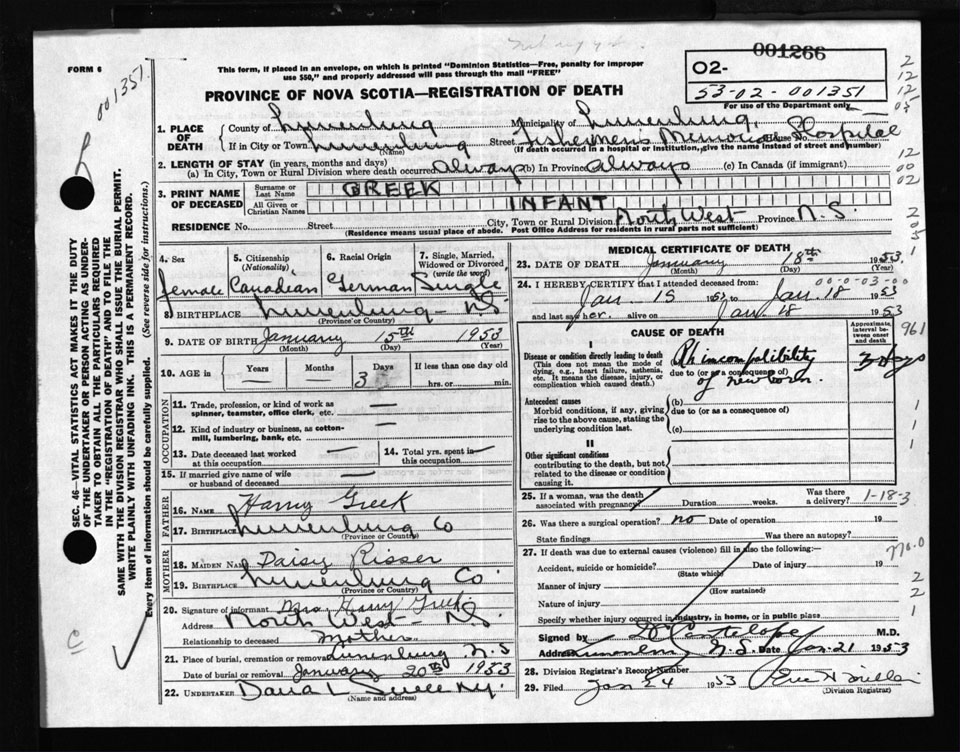 001266
FORM 6
This form, if placed in an envelope, on which is printed "Dominion Statistics—Free, penalty for improper
use $50," and properly addressed will pass through the mail "FREE"
O2-
53-02-001351
For use of the Department only
PROVINCE OF NOVA SCOTIA—REGISTRATION OF DEATH
001351
1. PLACE OF DEATH
County of Lunenburg Municipality of Lunenburg
If in City or Town Lunenburg Street Fishermen's Memorial House No. Hospital
(Name) (If death occurred in a hospital or institution, give the name instead of street and number)
2. LENGTH OF STAY (in years, months and days)
(a) In City, Town or Rural Division where death occurred Always (b) In Province Always (c) In Canada (if immigrant)
3. PRINT NAME OF DECEASED
Surname or Last Name GREEK
All Given or Christian Names INFANT
RESIDENCE No. Street City, Town or Rural Division North West Province N.S.
(Residence means usual place of abode. Post Office Address for residents in rural parts not sufficient)
4. Sex
female
5. Citizenship (Nationality)
Canadian
6. Racial Origin
German
7. Single, Married, Widowed or Divorced (write the word)
Single
8. BIRTHPLACE Lunenburg - N.S
(Province or Country)
9. DATE OF BIRTH January 15th 1953
(Month) (Day) (Year)
10. AGE in Years Months Days If less than one day old
— — 3 hrs. or min.
OCCUPATION
11. Trade, profession, or kind of work as
spinner, teamster, office clerk, etc. —
12. Kind of industry or business, as cotton-
mill, lumbering, bank, etc. —
13. Date deceased last worked
at this occupation —
14. Total yrs. spent in
this occupation —
15. If married give name of wife
or husband of deceased
FATHER
16. Name Harry Greek
17. Birthplace Lunenburg Co
(Province or Country)
MOTHER
18. MAIDEN Name Daisy Risser
19. Birthplace Lunenburg Co.
(Province or Country)
20. Signature of informant Mrs Harry Greek
Address North West - N.S
Relationship to deceased Mother
21. Place of burial, cremation or removal Lunenburg N.S
Date of burial or removal January 20th 1953
22. UNDERTAKER
(Name and address)
MEDICAL CERTIFICATE OF DEATH
23. DATE OF DEATH January 18th 1953
(Month) (Day) (Year)
24. I HEREBY CERTIFY that I attended deceased from:
00-0-03-00
Jan. 15 1953 to Jan. 18 1953
and last saw her alive on Jan 18 1953
CAUSE OF DEATH
Approximate interval between onset and death
961
I
Disease or condition directly leading to death
(This does not mean the mode of
dying, e.g., heart failure, asthenia,
etc. It means the disease, injury, or
complication which caused death.)
Rh incompatibility
due to (or as a consequence of)
of newborn.
3 days
Antecedent causes
Morbid conditions, if any, giving
rise to the above cause, stating the
underlying condition last.
(b)
due to (or as a consequence of)
(c)
II
Other significant conditions
contributing to the death, but not
related to the disease or condition
causing it.
25. If a woman, was the death
associated with pregnancy? Duration weeks. Was there a delivery?
1-18-3
26. Was there a surgical operation? no Date of operation 19
State findings Was there an autopsy?
27. If death was due to external causes (violence) fill in also the following:—
Accident, suicide or homicide? Date of injury 19
(State which)
Manner of injury
(How sustained)
Nature of injury
Specify whether injury occurred in industry, in home, or in public place
Signed by M.D.
Address Lunenburg N.S. Date Jan. 21 1953
28. Division Registrar's Record Number
29. Filed Jan 24 1953
(Division Registrar)
SEC. 46—VITAL STATISTICS ACT MAKES IT THE DUTY
OF THE UNDERTAKER OR PERSON ACTING AS UNDER-
TAKER TO OBTAIN ALL THE PARTICULARS REQUIRED
IN THE "REGISTRATION OF DEATH" AND TO FILE THE
SAME WITH THE DIVISION REGISTRAR WHO SHALL ISSUE THE BURIAL PERMIT.
WRITE PLAINLY WITH UNFADING INK. THIS IS A PERMANENT RECORD.
Every item of information should be carefully supplied. (See reverse side for instructions.)